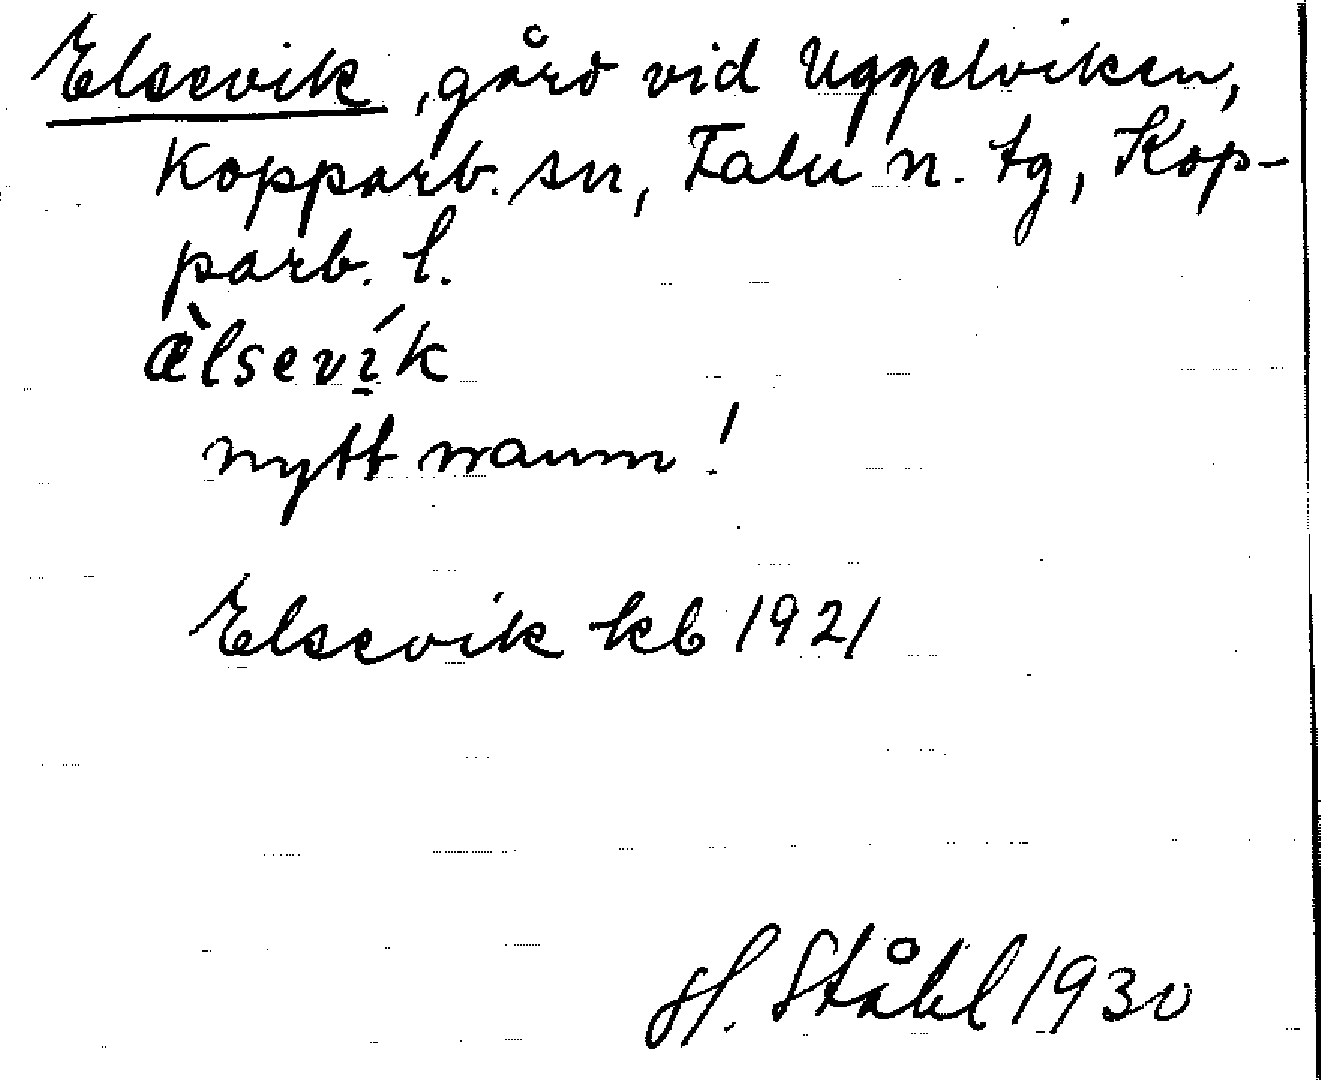 Elsevik, gård vid Uggelviken,
Kopparb. sn, Falu n. tg, Kop-
parb. l.
æ̀lseví̱k
nytt namn!
Elsevik kb 1921
H. Ståhl 1930